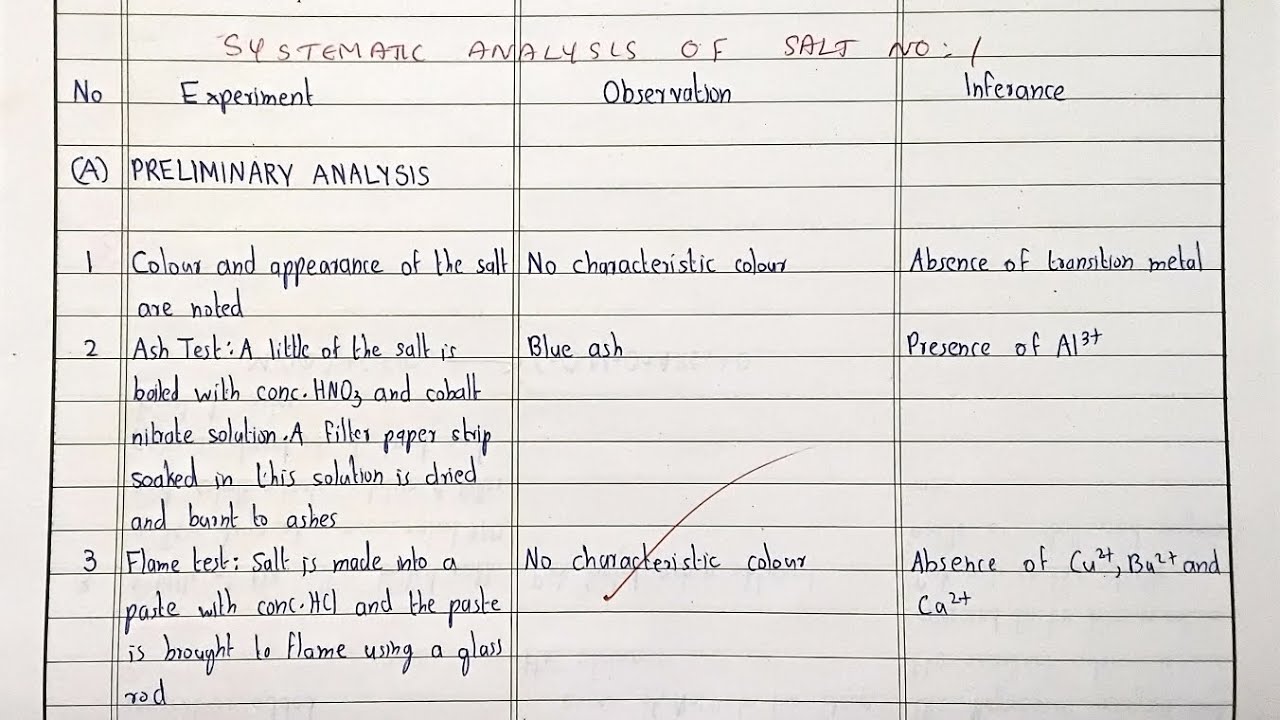 SYSTEMATIC ANALYSIS OF SALT NO: 1
No Experiment Observation Inferance
(A) PRELIMINARY ANALYSIS
1 Colour and appearance of the salt No characteristic colour Absence of transition metal
are noted
2 Ash Test: A little of the salt is Blue ash Presence of Al³⁺
boiled with conc. HNO₃ and cobalt
nitrate solution. A filter paper strip
soaked in this solution is dried
and burnt to ashes
3 Flame test: Salt is made into a No characteristic colour Absence of Cu²⁺, Ba²⁺ and
paste with conc. HCl and the paste Ca²⁺
is brought to flame using a glass
rod